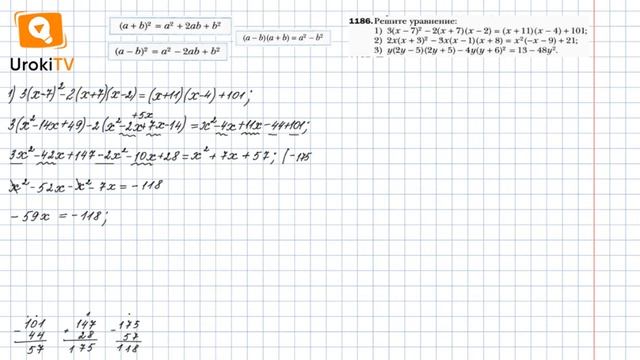 UrokiTV
(a + b)² = a² + 2ab + b²
(a − b)² = a² − 2ab + b²
(a − b)(a + b) = a² − b²
1186. Решите уравнение:
1) 3(x − 7)² − 2(x + 7)(x − 2) = (x + 11)(x − 4) + 101;
2) 2x(x + 3)² − 3x(x − 1)(x + 8) = x²(−x − 9) + 21;
3) y(2y − 5)(2y + 5) − 4y(y + 6)² = 13 − 48y².
1) 3(x-7)²-2(x+7)(x-2)=(x+11)(x-4)+101;
+5x
3(x²-14x+49)-2(x²-2x+7x-14)=x²-4x+11x-44+101;
3x²-42x+147-2x²-10x+28=x²+7x+57; (-175
x²-52x-x²-7x=-118
-59x=-118;
101 147 175
- 44 + 28 - 57
57 175 118